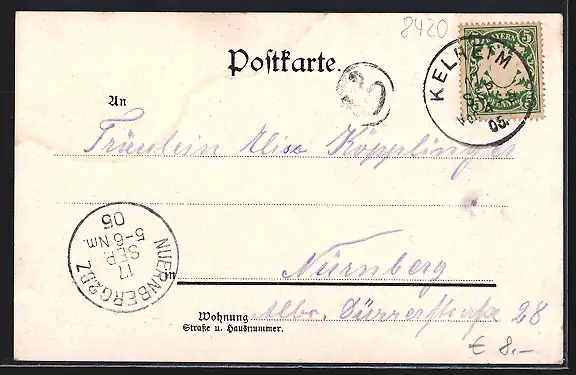 8420
Postkarte.
BAYERN 5
PFENNIG
KELHEIM
05.
An
Fräulein Elise Köpplinger
NUERNBERG 2 B.Z.
17 SEP.
5-6 Nm.
05
in Nürnberg
Wohnung Albr. Dürrerstraße 28
Straße u. Hausnummer.
€ 8.-